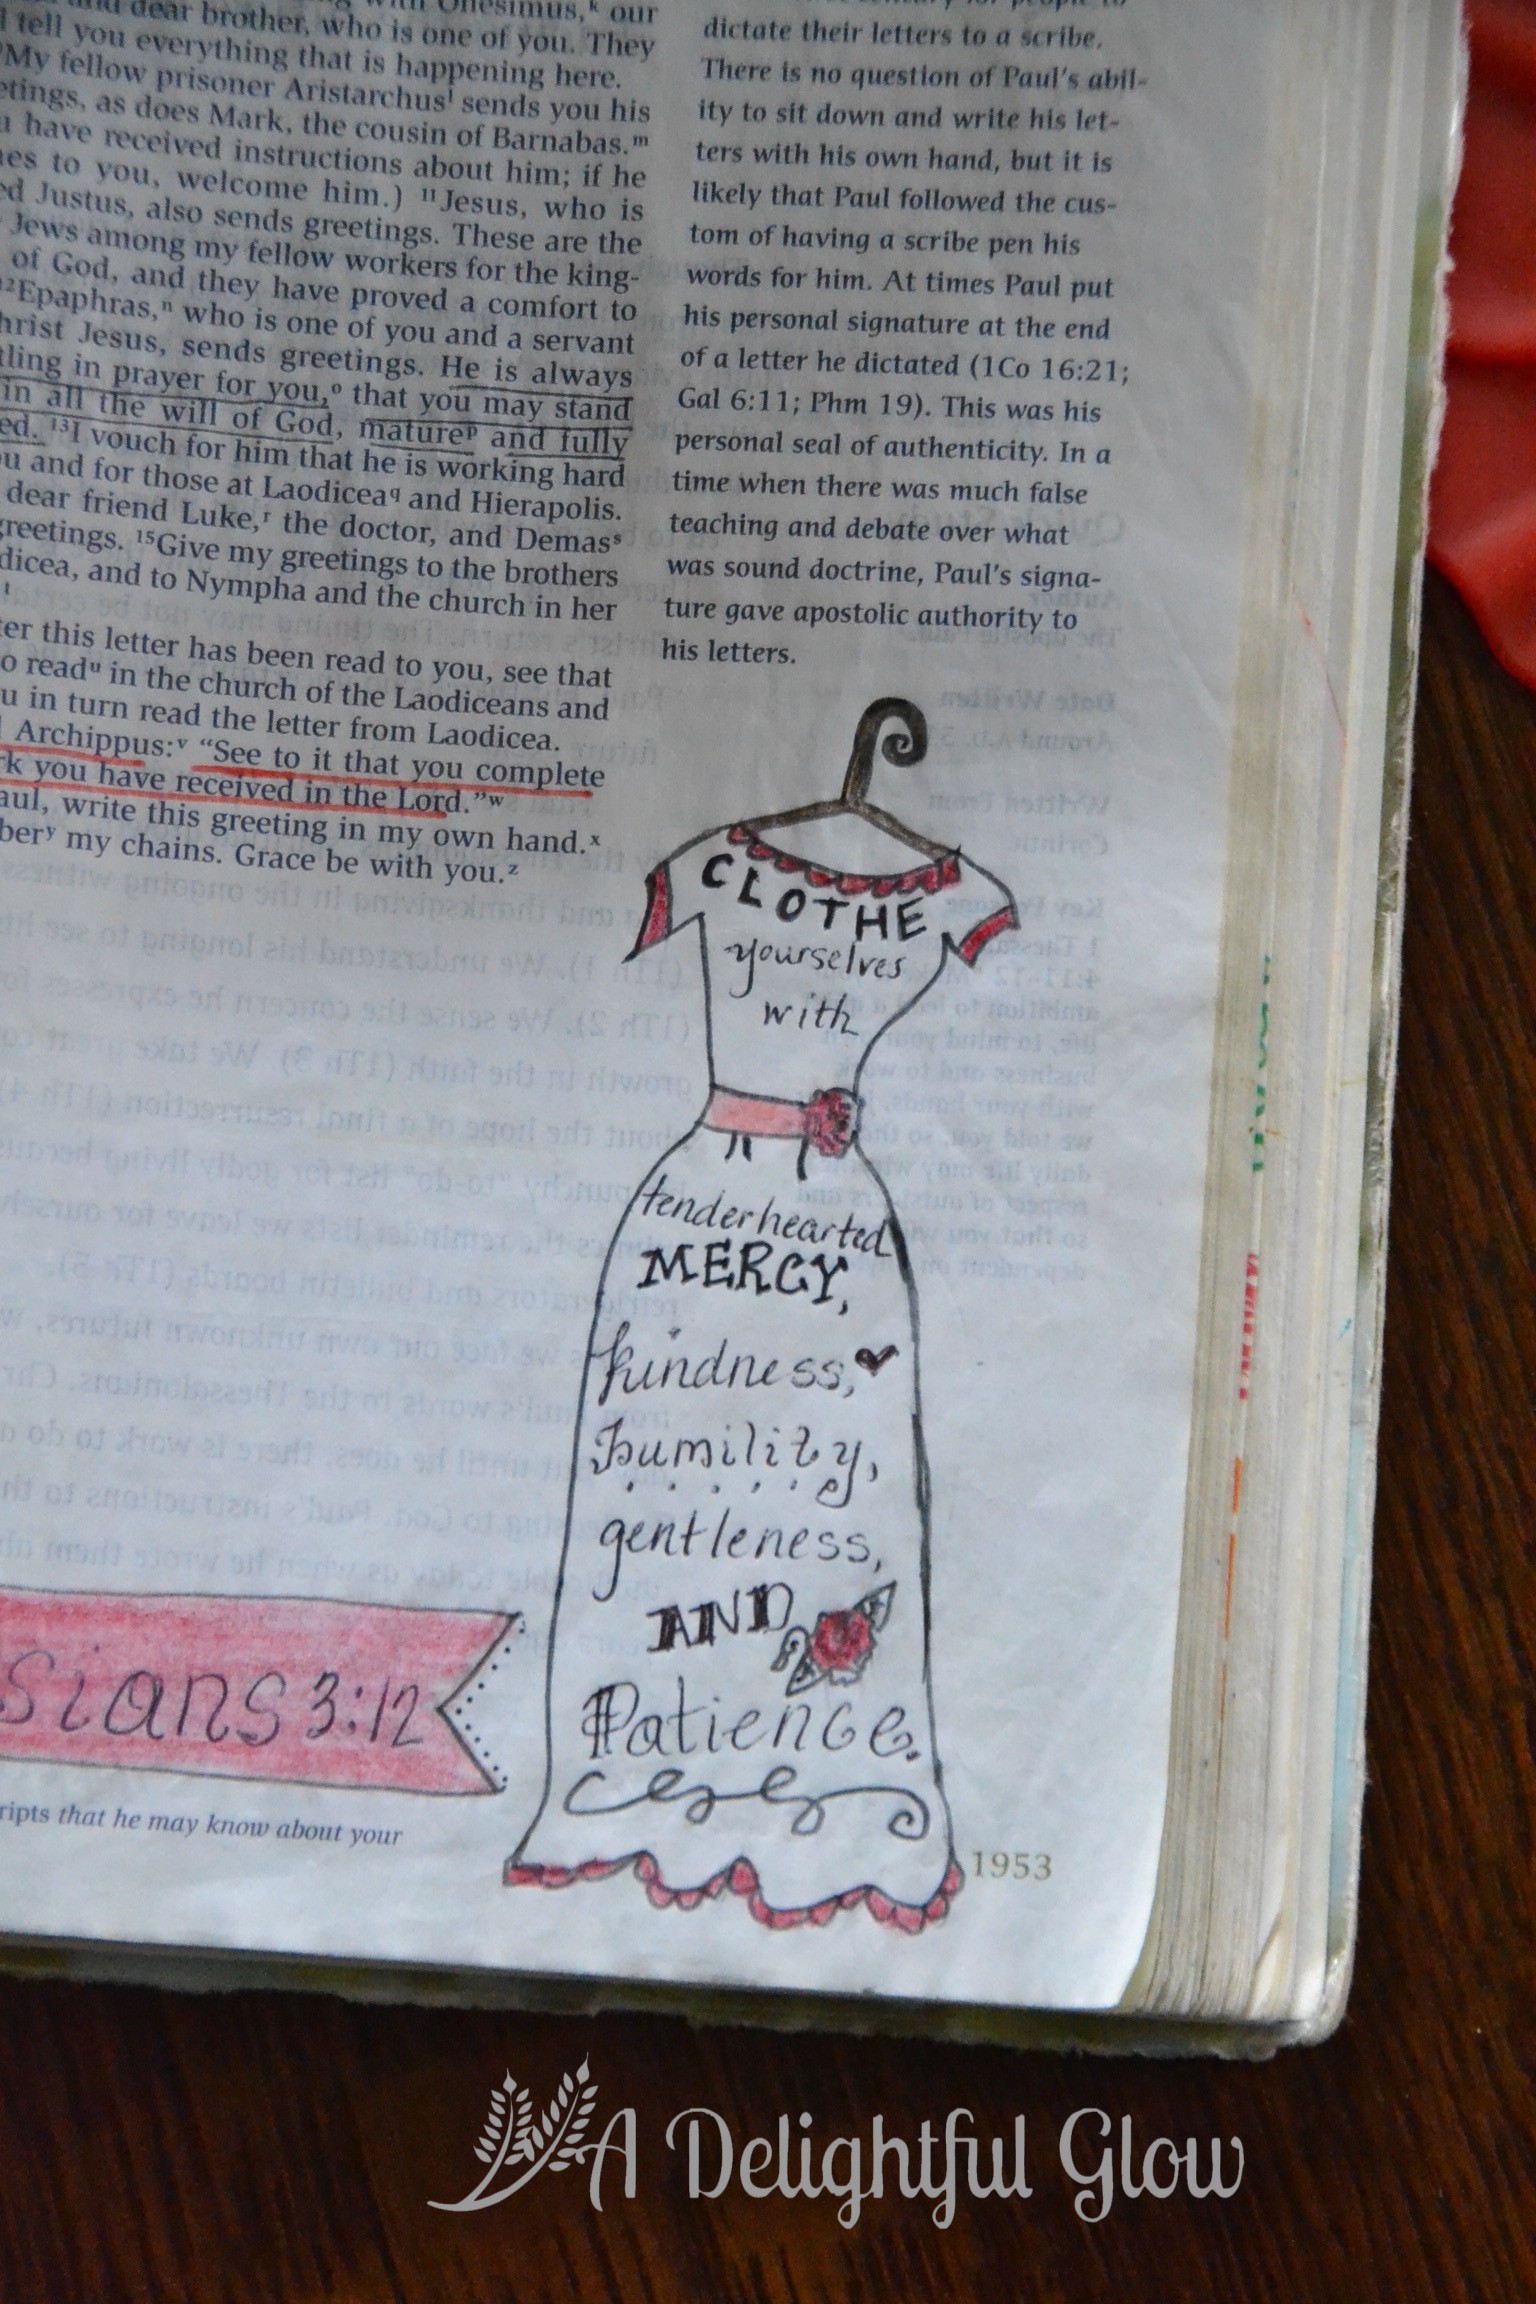 dear brother, who is one of you. They
tell you everything that is happening here.
My fellow prisoner Aristarchusˡ sends you his
as does Mark, the cousin of Barnabas.ᵐ
have received instructions about him; if he
to you, welcome him.) ¹¹Jesus, who is
Justus, also sends greetings. These are the
Jews among my fellow workers for the king-
of God, and they have proved a comfort to
¹²Epaphras,ⁿ who is one of you and a servant
Jesus, sends greetings. He is always
in prayer for you,ᵒ that you may stand
in all the will of God, matureᵖ and fully
¹³I vouch for him that he is working hard
and for those at Laodicea𐞥 and Hierapolis.
dear friend Luke,ʳ the doctor, and Demasˢ
greetings. ¹⁵Give my greetings to the brothers
and to Nympha and the church in her
this letter has been read to you, see that
readᵘ in the church of the Laodiceans and
in turn read the letter from Laodicea.
Archippus:ᵛ “See to it that you complete
you have received in the Lord.”ʷ
write this greeting in my own hand.ˣ
my chains. Grace be with you.ᶻ
dictate their letters to a scribe.
There is no question of Paul’s abil-
ity to sit down and write his let-
ters with his own hand, but it is
likely that Paul followed the cus-
tom of having a scribe pen his
words for him. At times Paul put
his personal signature at the end
of a letter he dictated (1Co 16:21;
Gal 6:11; Phm 19). This was his
personal seal of authenticity. In a
time when there was much false
teaching and debate over what
was sound doctrine, Paul’s signa-
ture gave apostolic authority to
his letters.
CLOTHE
yourselves
with
tenderhearted
MERCY,
kindness,
humility,
gentleness,
AND
Patience.
sians 3:12
that he may know about your
1953
A Delightful Glow